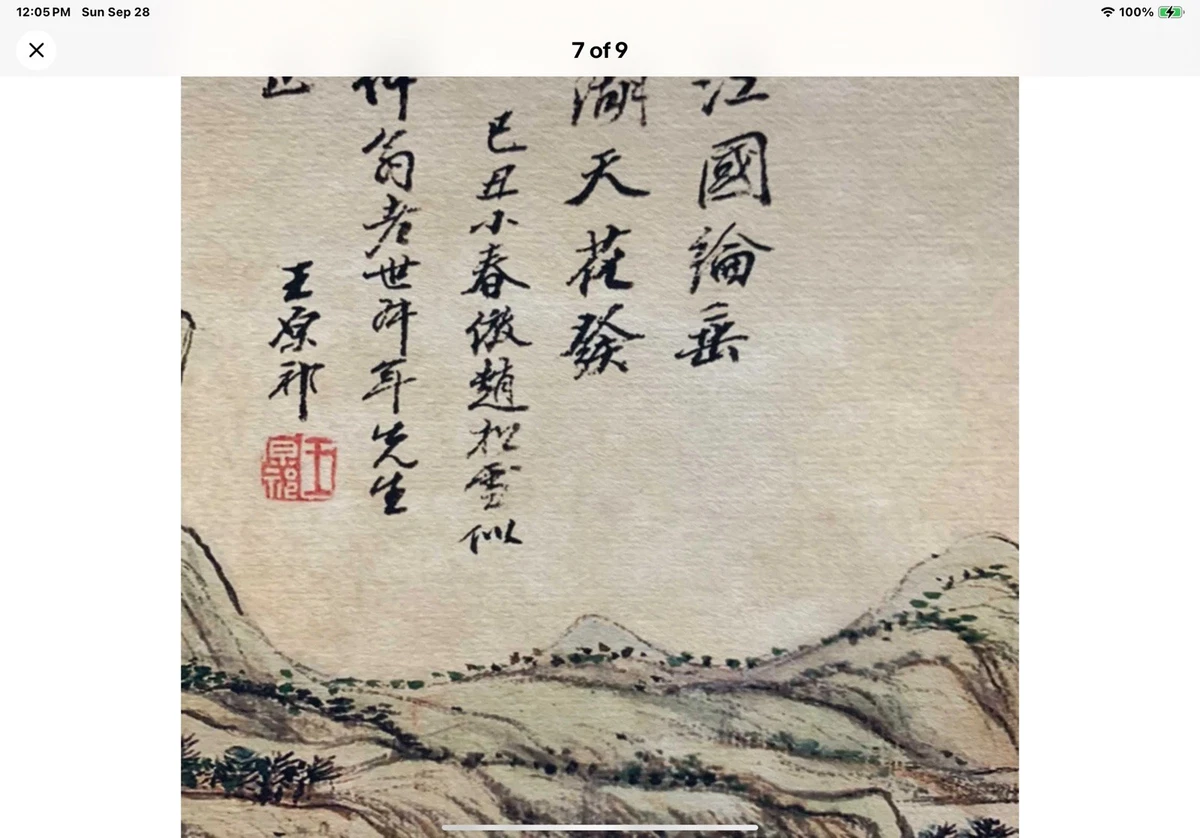 12:05 PM Sun Sep 28
100%
7 of 9
江國綸垂
湖天花發
己丑小春倣趙松雪似
翁老世年先生
正
王原祁
王原祁